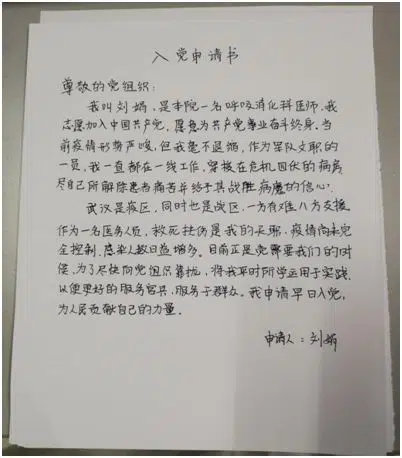 入党申请书
尊敬的党组织：
我叫刘娟，是本院一名呼吸消化科医师，我
志愿加入中国共产党，愿意为共产党事业奋斗终身。当
前疫情形势严峻，但我毫不退缩，作为军队文职的
一员，我一直都在一线工作，穿梭在危机四伏的病房，
尽自己所能解除患者痛苦并给予其战胜病魔的信心。
武汉是疫区，同时也是战区，一方有难八方支援，
作为一名医务人员，救死扶伤是我的天职，疫情尚未完
全控制，感染人数日益增多。目前正是党需要我们的时
候，为了尽快向党组织靠拢，将我平时所学运用于实践，
以便更好的服务官兵，服务于群众。我申请早日入党，
为人民贡献自己的力量。
申请人：刘娟